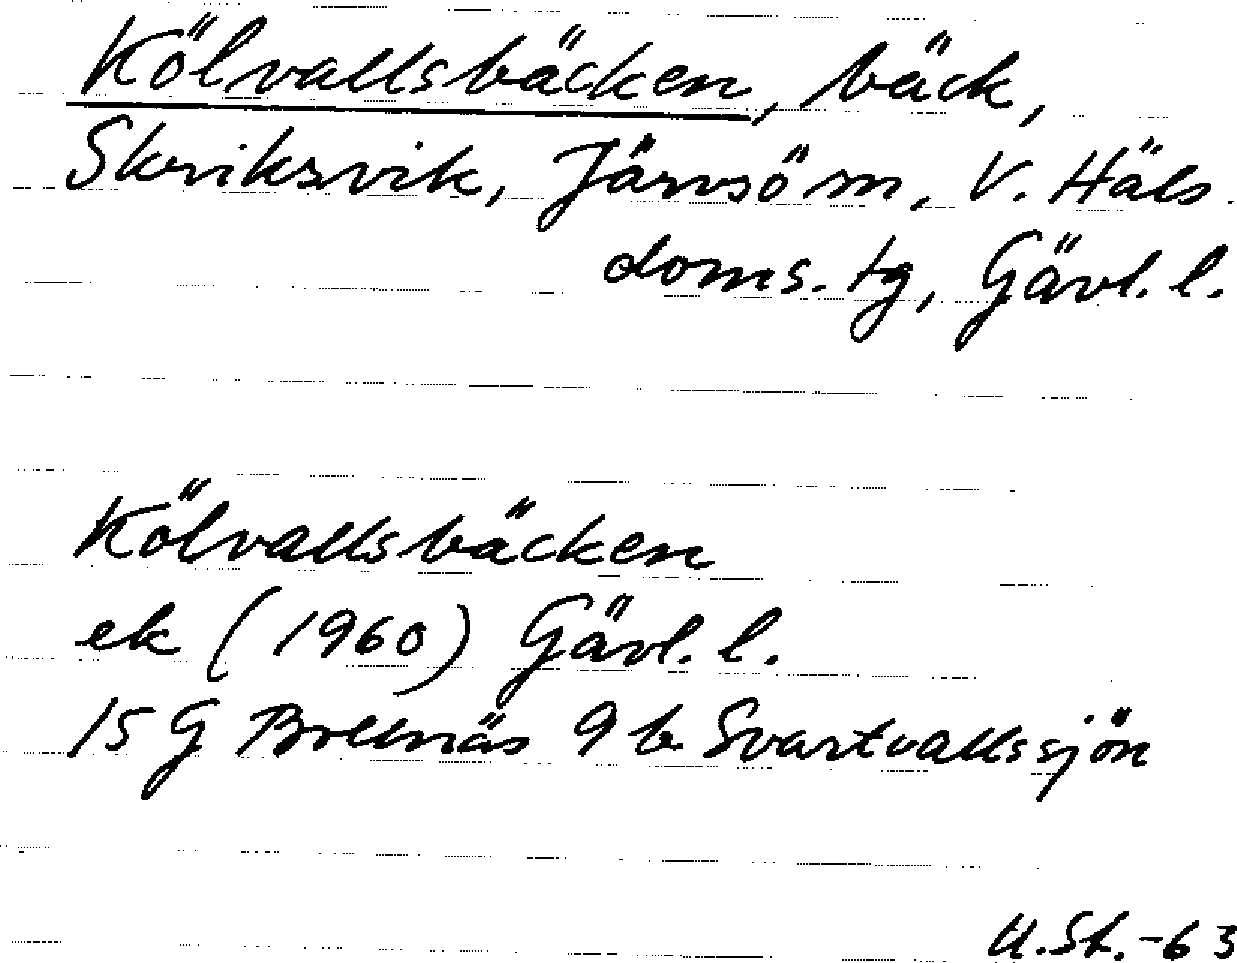 Kölvallsbäcken, bäck,
Skriksvik, Järvsö sn, V. Häls.
doms. tg, Gävl. l.
Kölvallsbäcken
ek (1960) Gävl. l.
15 G Bollnäs 9 b Svartvallssjön
U.St.-63